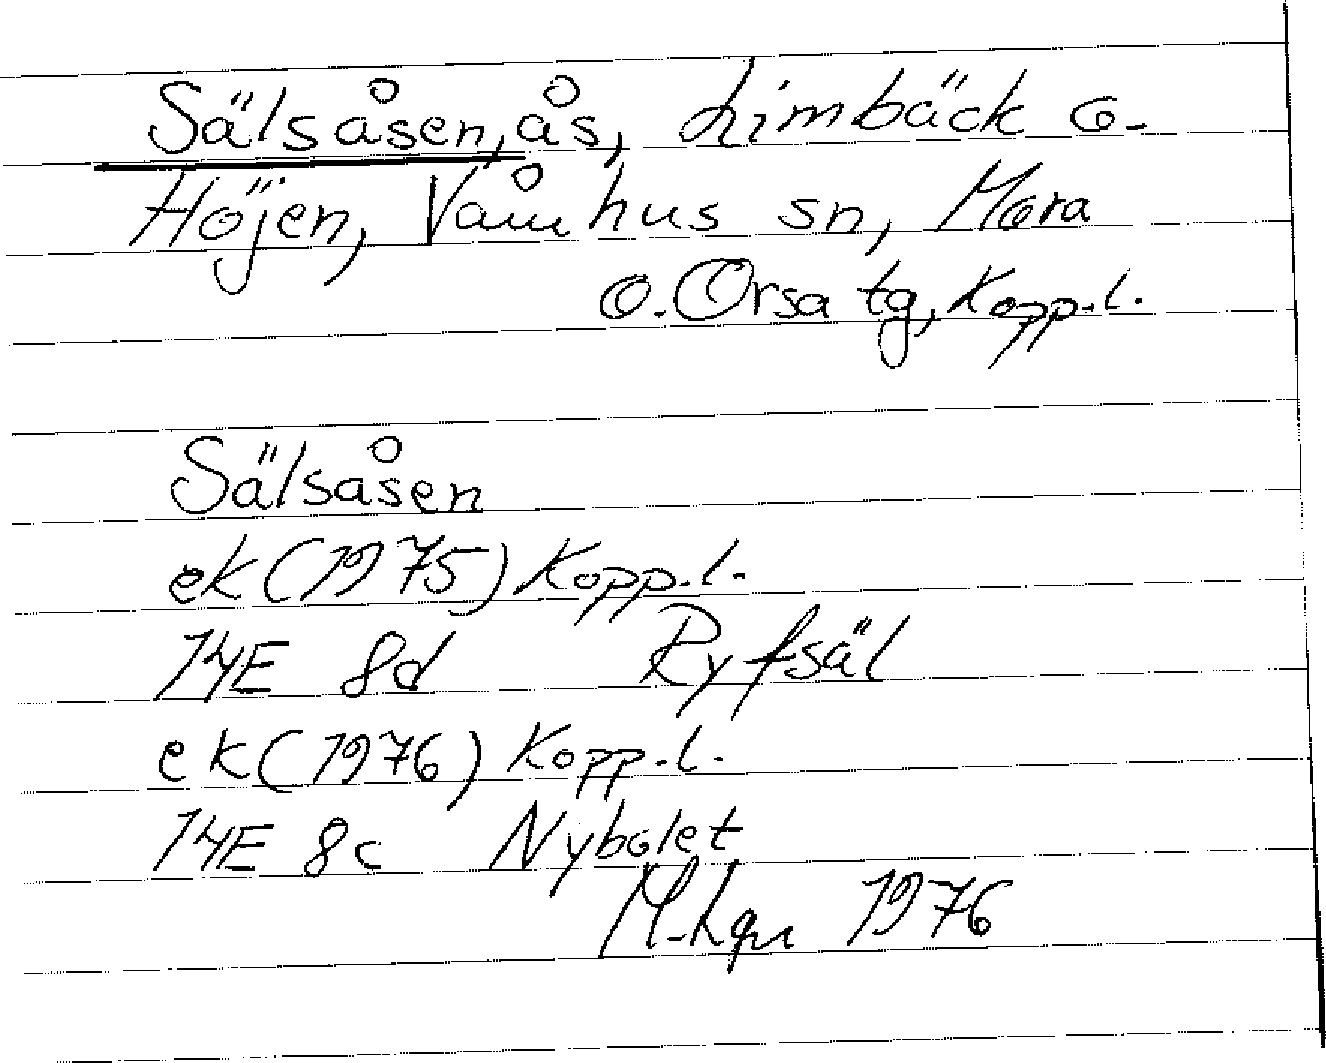 Sälsåsen, ås, Limbäck o.
Höjen, Våmhus sn, Mora
o. Orsa tg, Kopp.l.
Sälsåsen
ek (1975) Kopp.l.
14E 8d Ryfsäl
ek (1976) Kopp.l.
14E 8c Nybolet
M. Lgn 1976